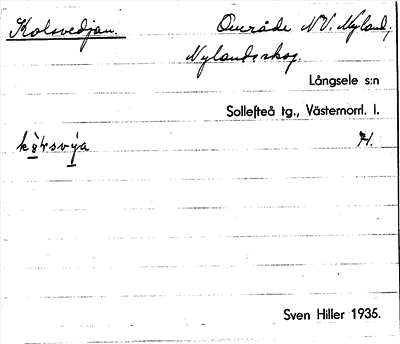 Kolsvedjan. Område NV. Nyland,
Nylandsskog.
Långsele s:n
Sollefteå tg., Västernorrl. l.
H.
Sven Hiller 1935.